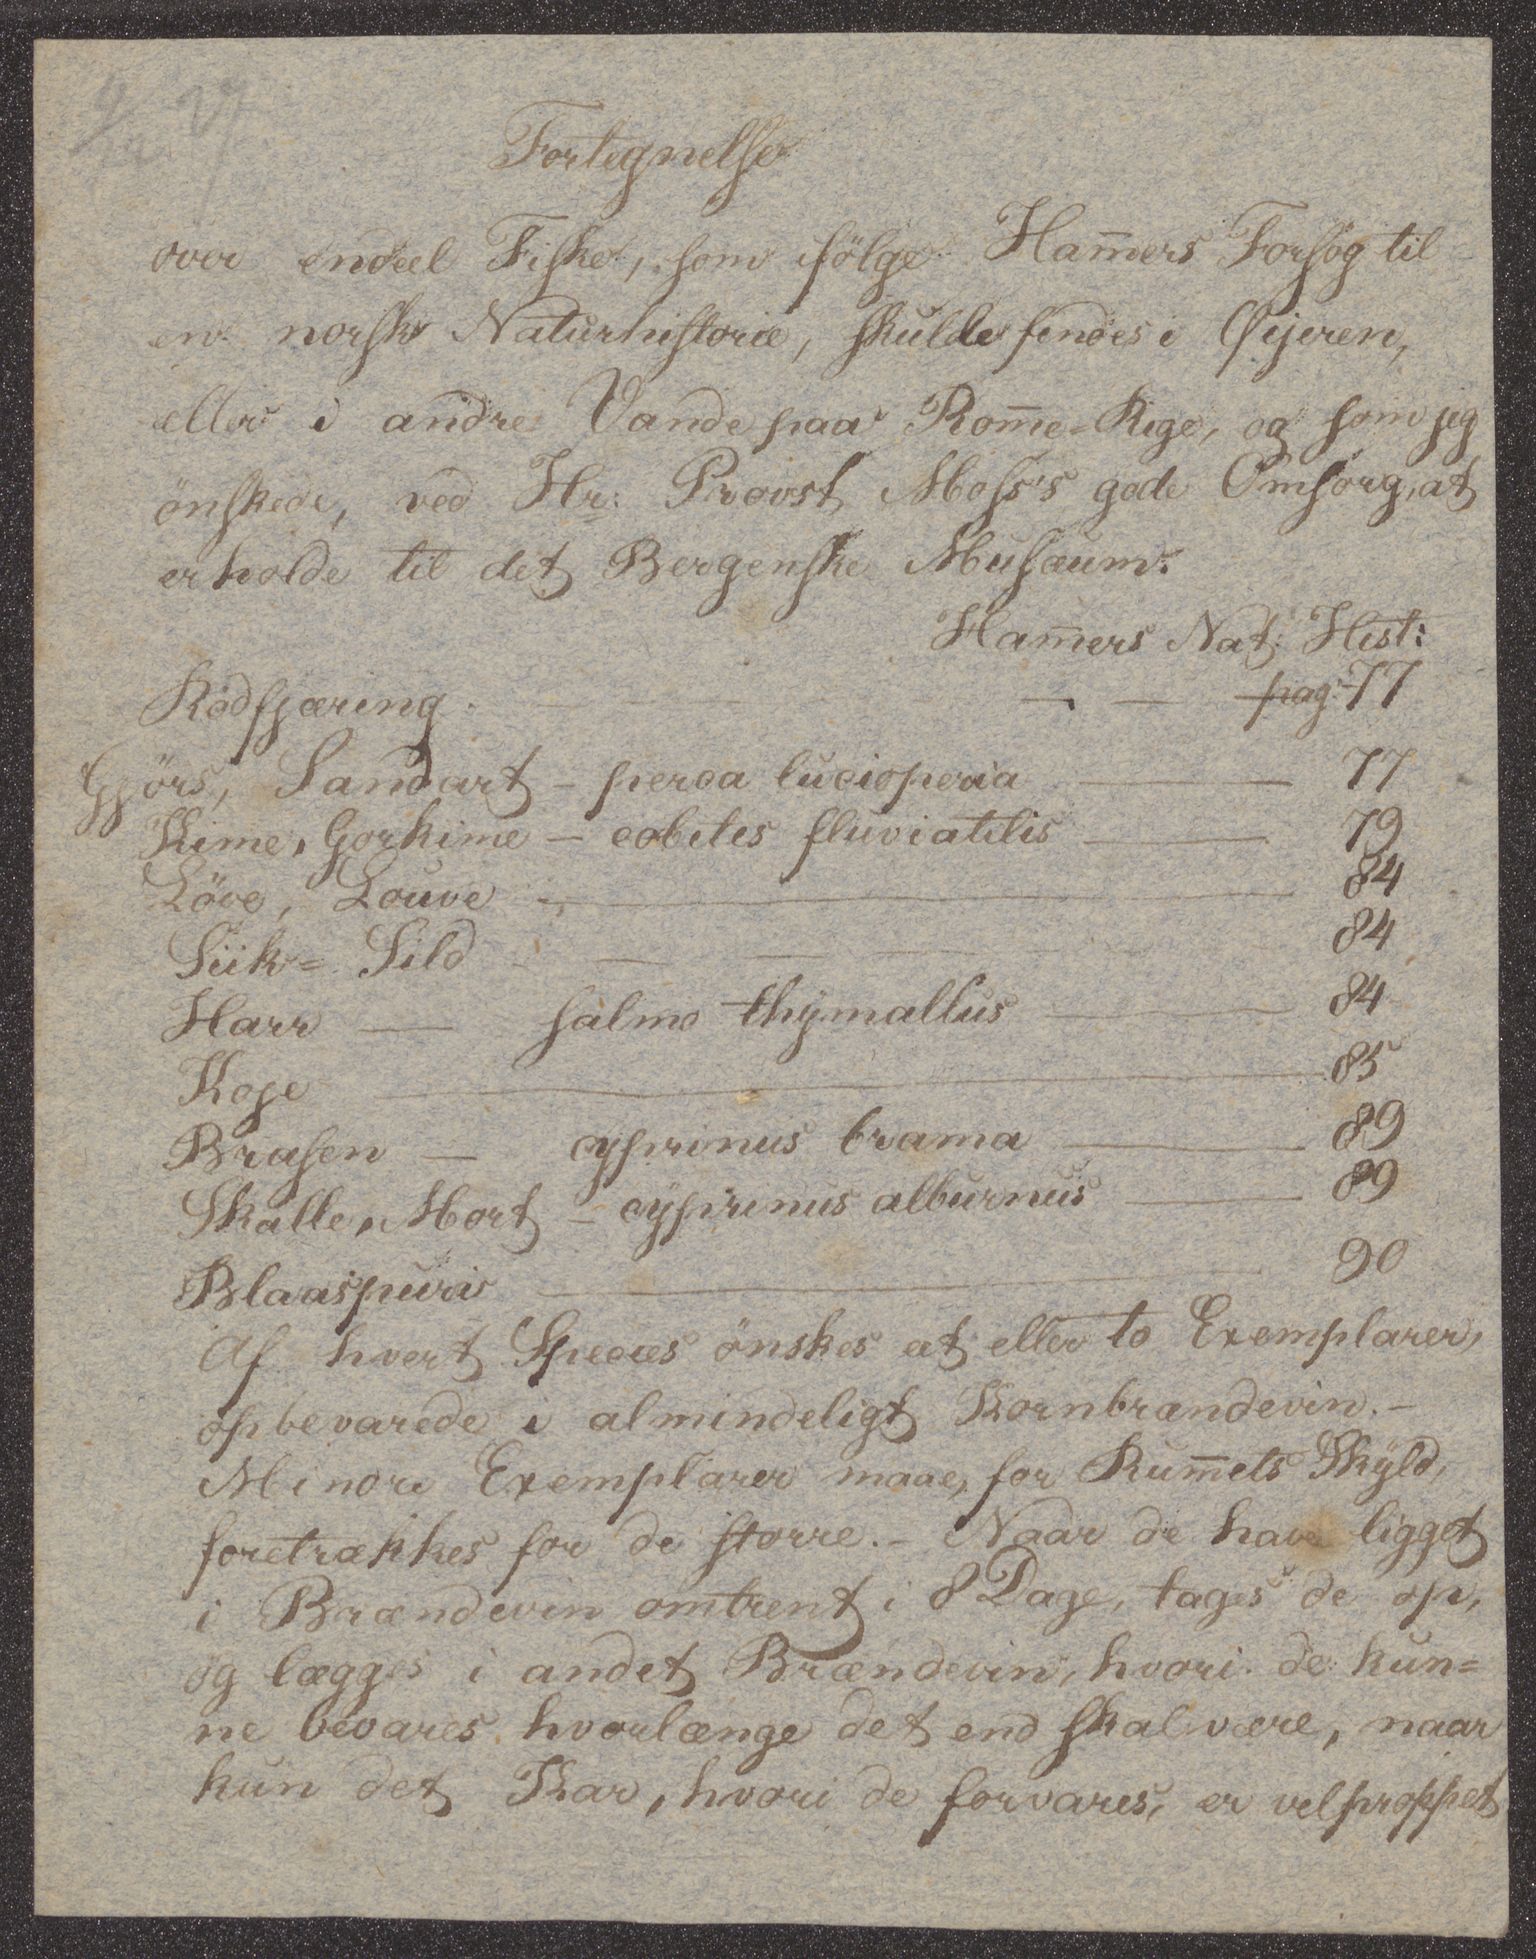 Fortegnelse
over endeel Fiske, som ifölge Ham̄ers Forsög til
en norsk Naturhistorie, skulde findes i Øijeren,
eller i andre Vande paa Rom̄e-Rige, og som jeg
önskede, ved Hr. Provst Moss's gode Omsorg, at
erholde til det Bergenske Musæum.
Ham̄ers Nat: Hist:
Rödfjæring. — — pag: 77
Gjörs, Sandart – perca lucioperca — 77
Kime, Gorkime – cobites fluviatilis — 79
Löve, Louve — 84
Siik= Sild — — — 84
Harr — salmo thymallus — 84
Koje — 85
Brasen — cyprinus brama — 89
Skalle, Mort – cyprinus alburnus — 89
Blaaspurv — 90
Af hvert Species önskes et eller to Exemplarer,
opbevarede i almindeligt Kornbrændevin. –
Mindre Exemplarer maae, for Rum̄ets Skyld,
foretrækkes for de storre. – Naar de have ligget
i Brændevin omtrent i 8 Dage, tages de op,
og lægges i andet Brændevin, hvori de kun=
ne bevares hvorlænge det end skal være, naar
kun det Kar, hvori de forvares, er vel proppet